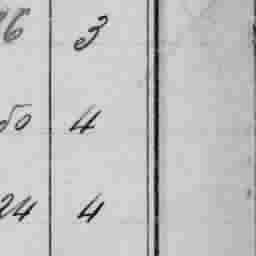 16 3
50 4
24 4